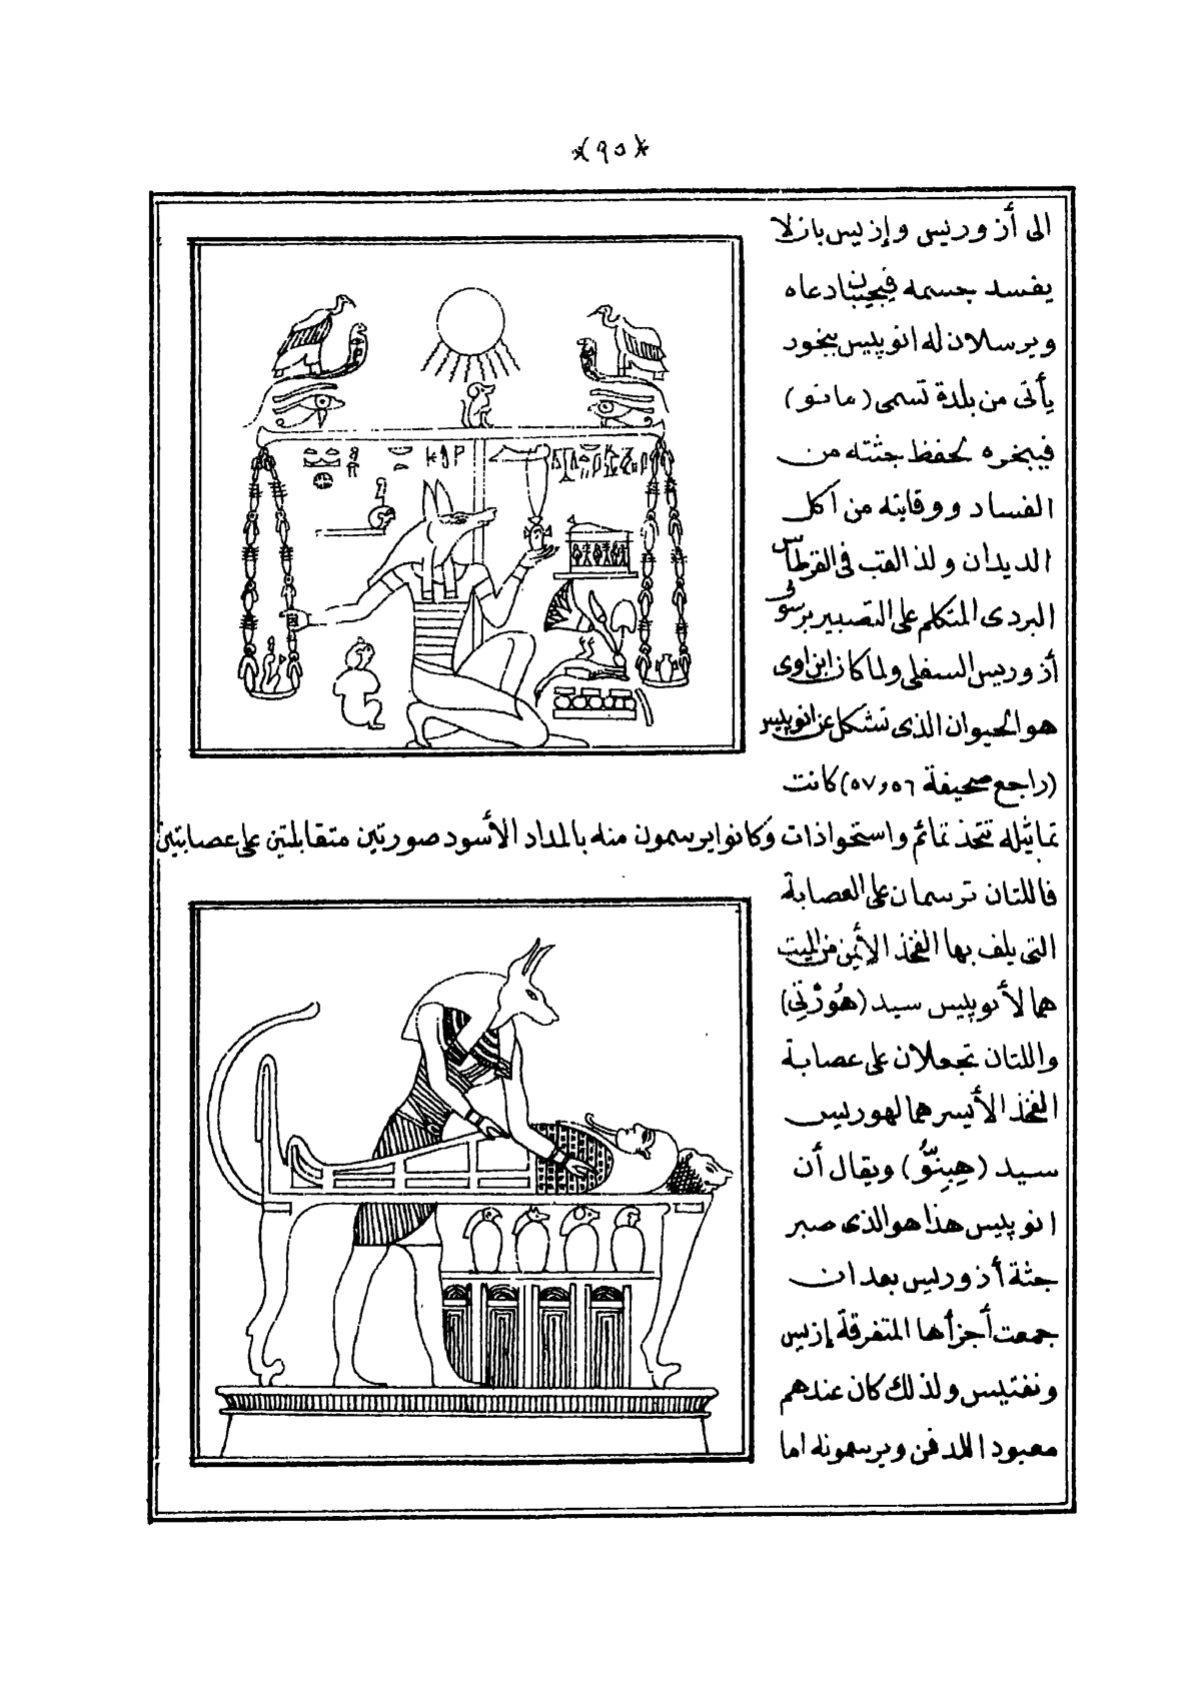 ﴿٩٥﴾
الى أزوريس وإزيس بان لا
يفسد جسمه فيجيبان دعاه
ويرسلان له انوپيس ببخور
يأتى من بلدة تسمى (مانو)
فيبخره لحفظ جثته من
الفساد ووقايته من اكل
الديدان ولذا لقب فى القرطاس
البردى المتكلم على التصبير برسولى
أزوريس السفلى ولما كان ابن اوى
هو الحيوان الذى تشكل عن انوپيس
(راجع صحيفة ٥٦و٥٧) كانت
تماثيله تتخذ تمائم واستحواذات وكانوا يرسمون منه بالمداد الأسود صورتين متقابلتين على عصابتين
فاللتان ترسمان على العصابة
التى يلف بها الفخذ الأيمن من الميت
هما لأنوپيس سيد (هُوزْتِى)
واللتان تجعلان على عصابة
الفخذ الأيسر هما لهوريس
سيد (هِبِنّوُ) ويقال أن
انوپيس هذا هو الذى صبر
جثة أزوريس بعد ان
جمعت أجزأها المتفرقة إزيس
ونفتيس ولذلك كان عندهم
معبود اللدفن ويرسمونه اما